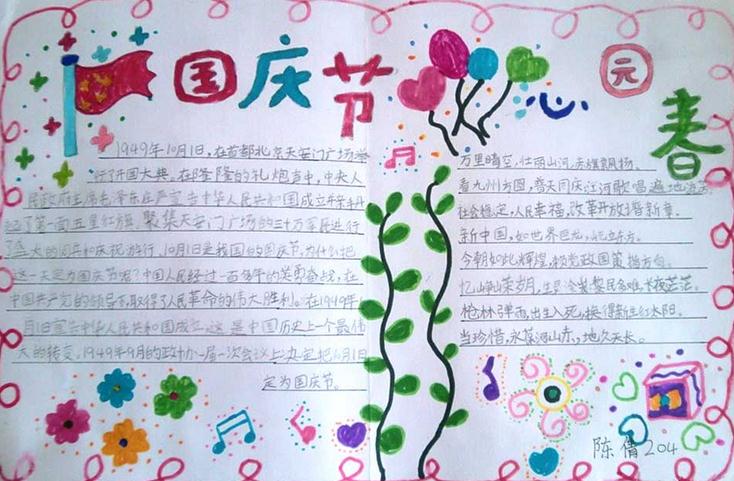 国庆节
心 元
春
1949年10月1日，在首都北京天安门广场举
行了开国大典，在隆隆的礼炮声中，中央人
民政府主席毛泽东庄严宣告中华人民共和国成立并亲手升
起了第一面五星红旗。聚集天安门广场的三十万军民进行
了盛大的阅兵和庆祝游行，10月1日是我国的国庆节，为什么把
这一天定为国庆节呢？中国人民经过一百多年的英勇奋战，在
中国共产党的领导下，取得了人民革命的伟大胜利。在1949年10
月1日宣告中华人民共和国成立，这是中国历史上一个最伟
大的转变，1949年9月的政协一届一次会议上决定把10月1日
定为国庆节。
万里晴空，壮丽山河，赤旗飘扬。
看九州方圆，普天同庆，江河歌唱遍地
社会稳定，人民幸福，改革开放谱新章。
新中国，如世界巨龙，屹立东方。
今朝如此辉煌，赖党政国策指方向。
忆峥嵘 黎民多难，长夜茫茫。
枪林弹雨，出生入死，换得新生红太阳。
当珍惜，永葆河山赤，地久天长。
陈倩204